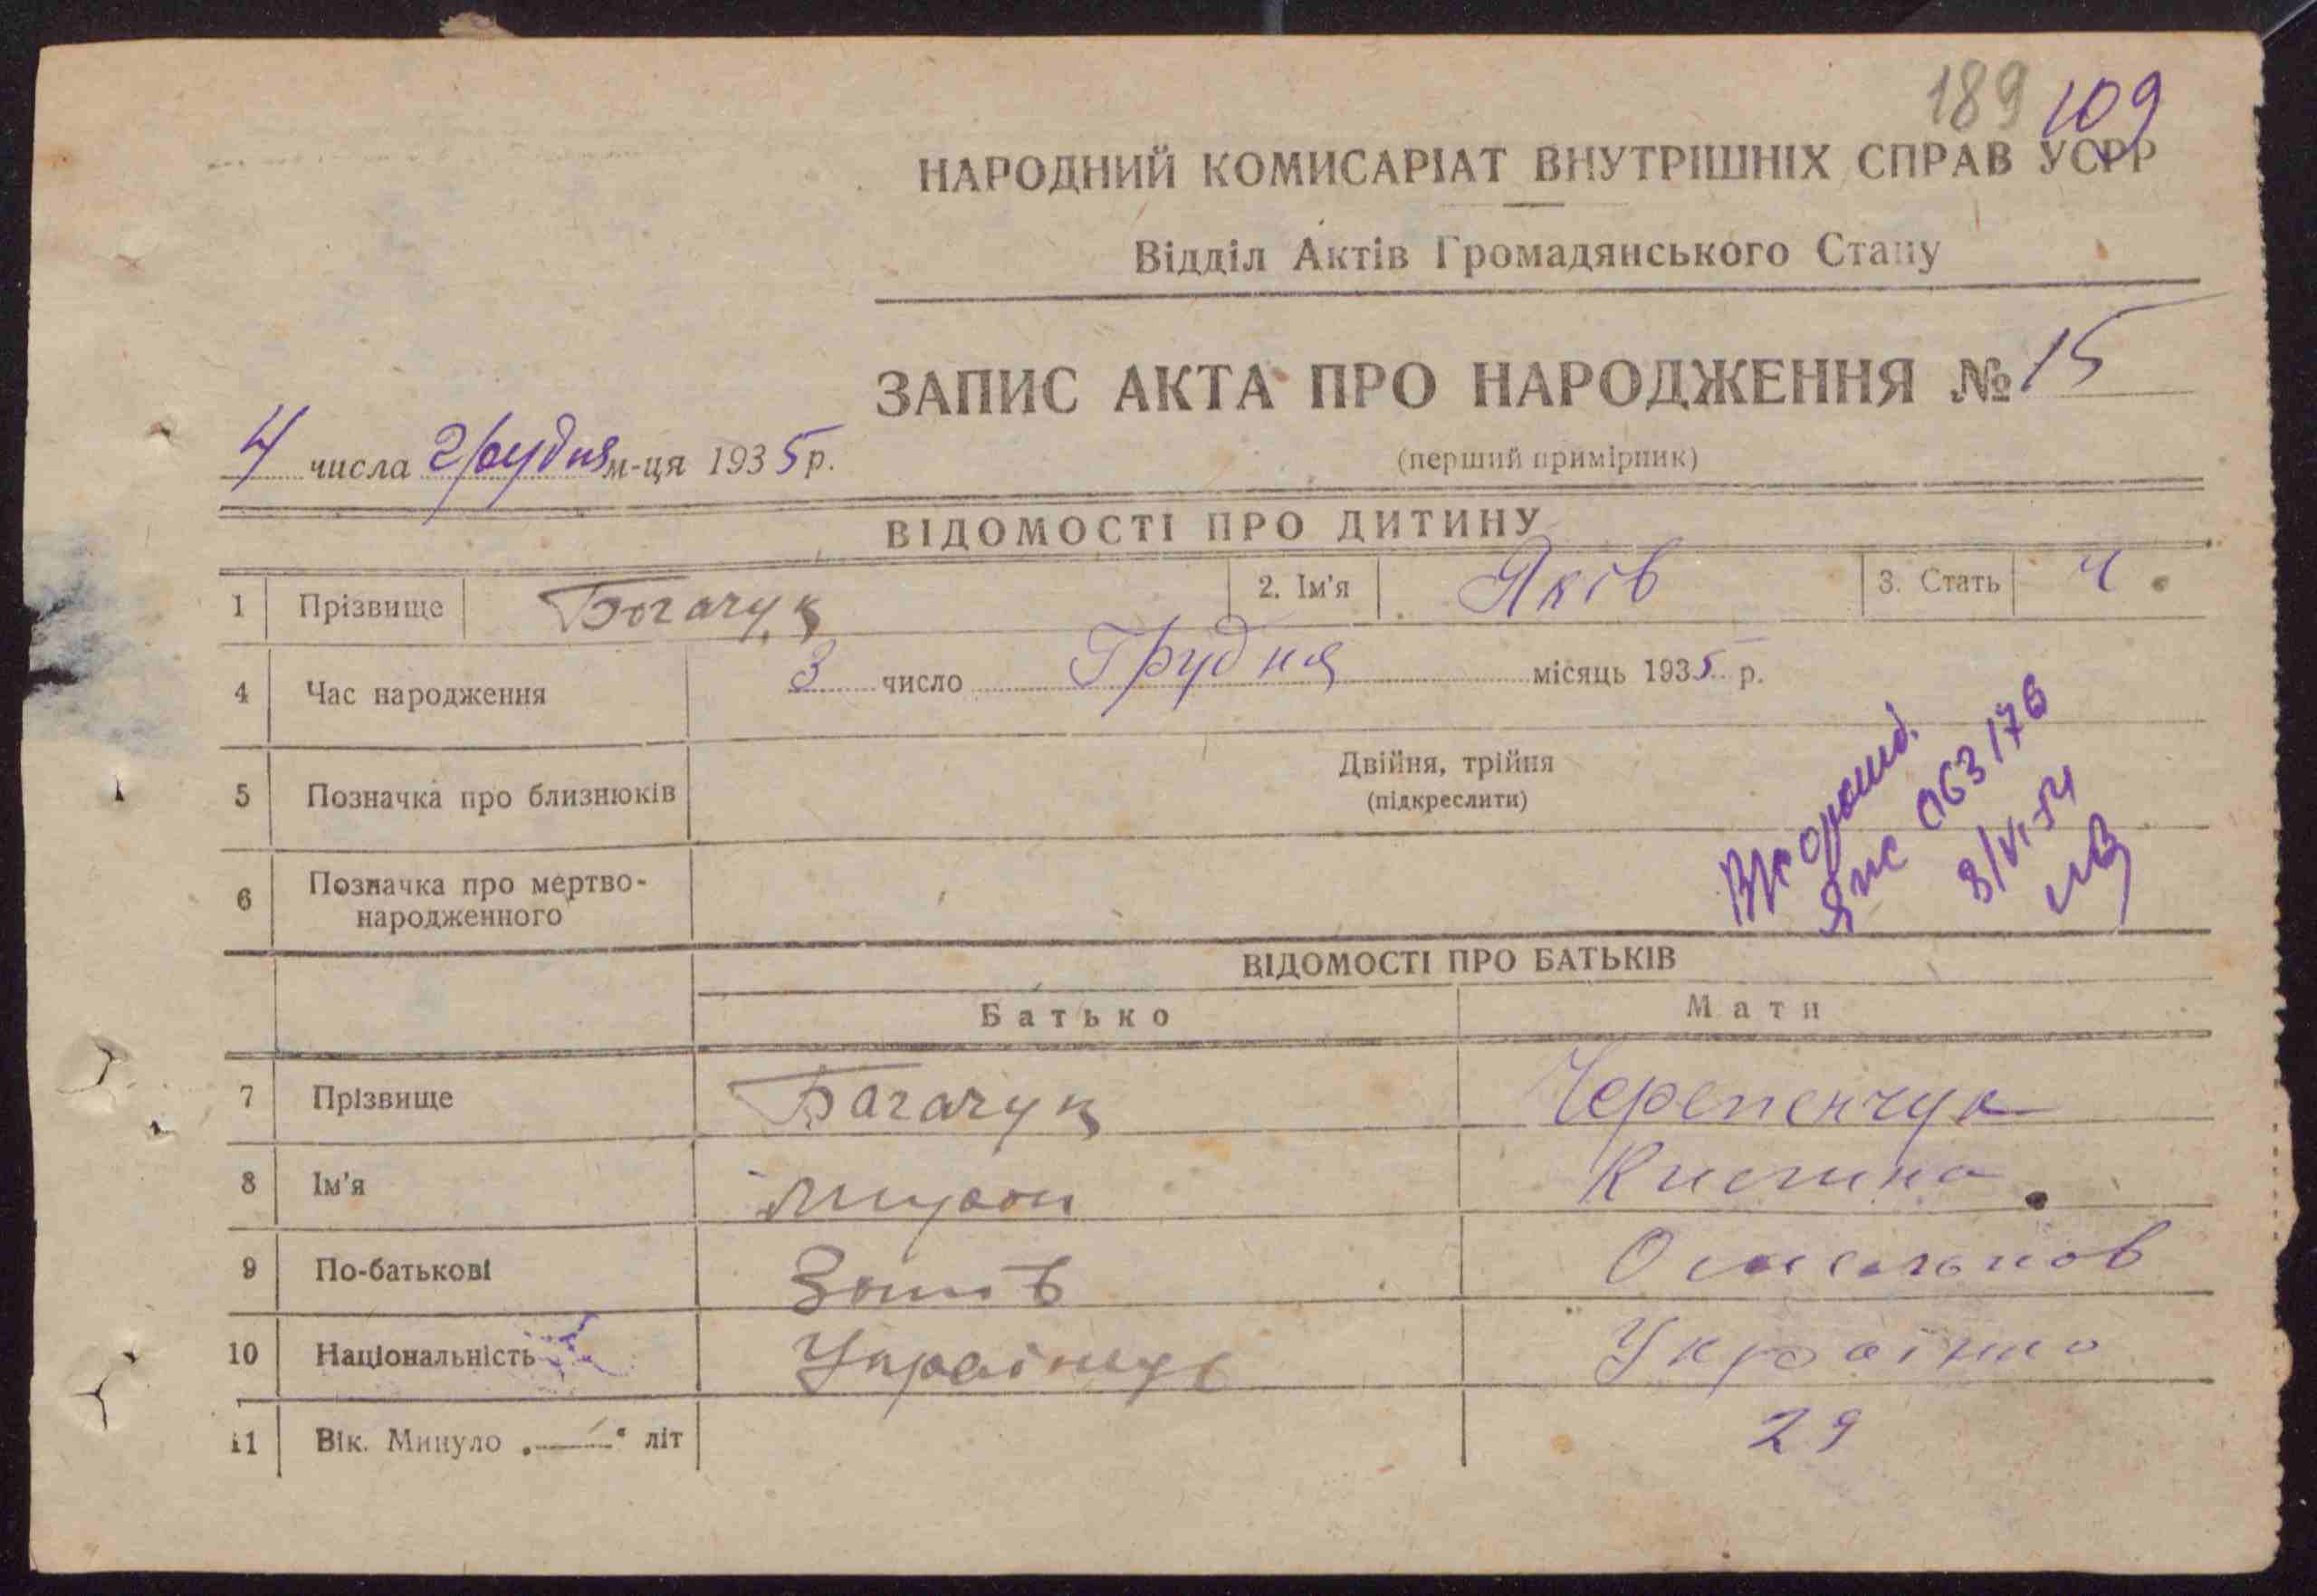 189 109
НАРОДНИЙ КОМИСАРІАТ ВНУТРІШНІХ СПРАВ УСРР
Відділ Актів Громадянського Стану
ЗАПИС АКТА ПРО НАРОДЖЕННЯ № 15
4 числа Грудня м-ця 1935 р.
(перший примірник)
ВІДОМОСТІ ПРО ДИТИНУ
1 Прізвище Богачук 2. Ім'я Яків 3. Стать Ч.
4 Час народження 3 число Грудня місяць 1935 р.
5 Позначка про близнюків Двійня, трійня
(підкреслити)
6 Позначка про мертво-
народженного
063176
8/VI-54
ВІДОМОСТІ ПРО БАТЬКІВ
Батько Мати
7 Прізвище Багачук Черепенчук
8 Ім'я Мирон
9 По-батькові
10 Національність Українець Українка
11 Вік. Минуло „—“ літ 29